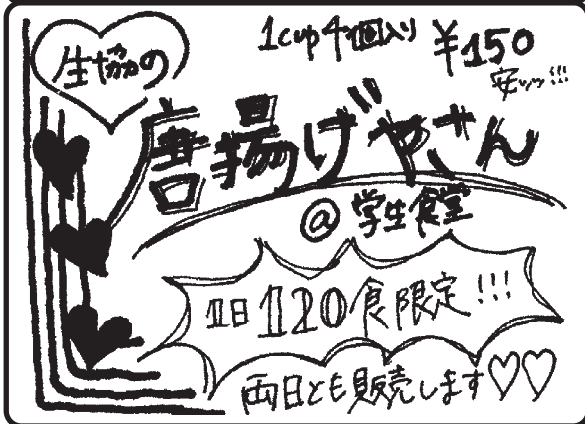 生協の
1cup4個入り ¥150
安ッッ!!!
唐揚げやさん
@学生食堂
1日120食限定!!!
両日とも販売します♡♡